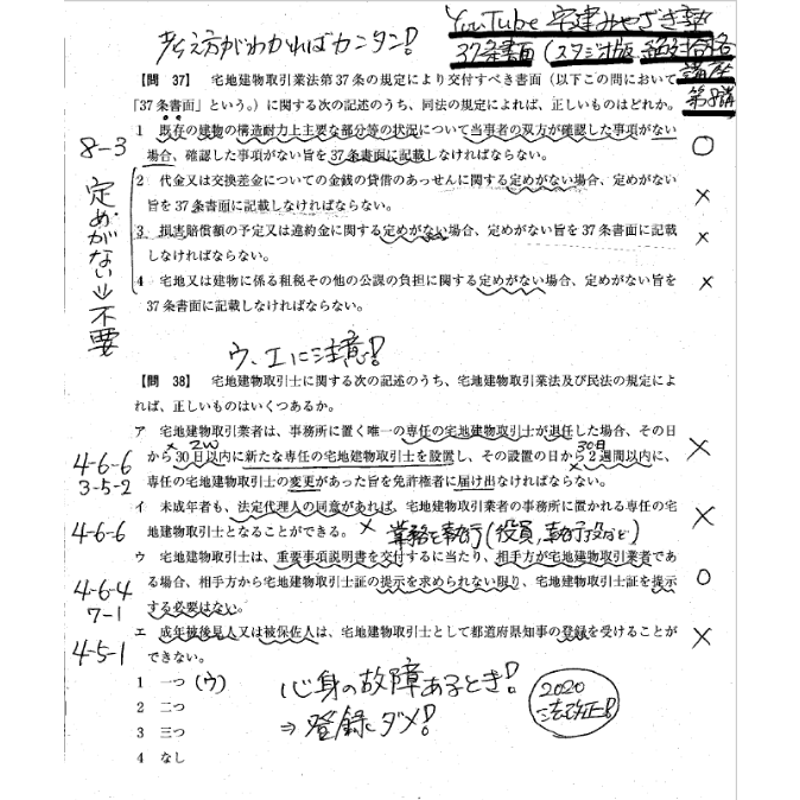 YouTube 宅建みやざき塾
考え方がわかればカンタン!
37条書面(スタジオ版 絶対合格
講座
第8講
【問 37】 宅地建物取引業法第37条の規定により交付すべき書面(以下この問において
「37条書面」という。)に関する次の記述のうち、同法の規定によれば、正しいものはどれか。
1 既存の建物の構造耐力上主要な部分等の状況について当事者の双方が確認した事項がない
○
8-3
場合、確認した事項がない旨を37条書面に記載しなければならない。
2 代金又は交換差金についての金銭の貸借のあっせんに関する定めがない場合、定めがない
×
旨を37条書面に記載しなければならない。
3 損害賠償額の予定又は違約金に関する定めがない場合、定めがない旨を37条書面に記載
×
しなければならない。
4 宅地又は建物に係る租税その他の公課の負担に関する定めがない場合、定めがない旨を
×
37条書面に記載しなければならない。
定めがない⇒不要
ウ、エに注意!
【問 38】 宅地建物取引士に関する次の記述のうち、宅地建物取引業法及び民法の規定によ
れば、正しいものはいくつあるか。
ア 宅地建物取引業者は、事務所に置く唯一の専任の宅地建物取引士が退任した場合、その日
× 2W 30日
から30日以内に新たな専任の宅地建物取引士を設置し、その設置の日から2週間以内に、
×
×
4-6-6
3-5-2
専任の宅地建物取引士の変更があった旨を免許権者に届け出なければならない。
イ 未成年者も、法定代理人の同意があれば、宅地建物取引業者の事務所に置かれる専任の宅
×
4-6-6
地建物取引士となることができる。
× 業務を執行(役員,執行役など)
ウ 宅地建物取引士は、重要事項説明書を交付するに当たり、相手方が宅地建物取引業者であ
○
4-6-4
る場合、相手方から宅地建物取引士証の提示を求められない限り、宅地建物取引士証を提示
7-1
する必要はない。
エ 成年被後見人又は被保佐人は、宅地建物取引士として都道府県知事の登録を受けることが
×
4-5-1
できない。
1 一つ (ウ)
2 二つ
3 三つ
4 なし
心身の故障あるとき!
⇒登録ダメ!
2020
法改正!